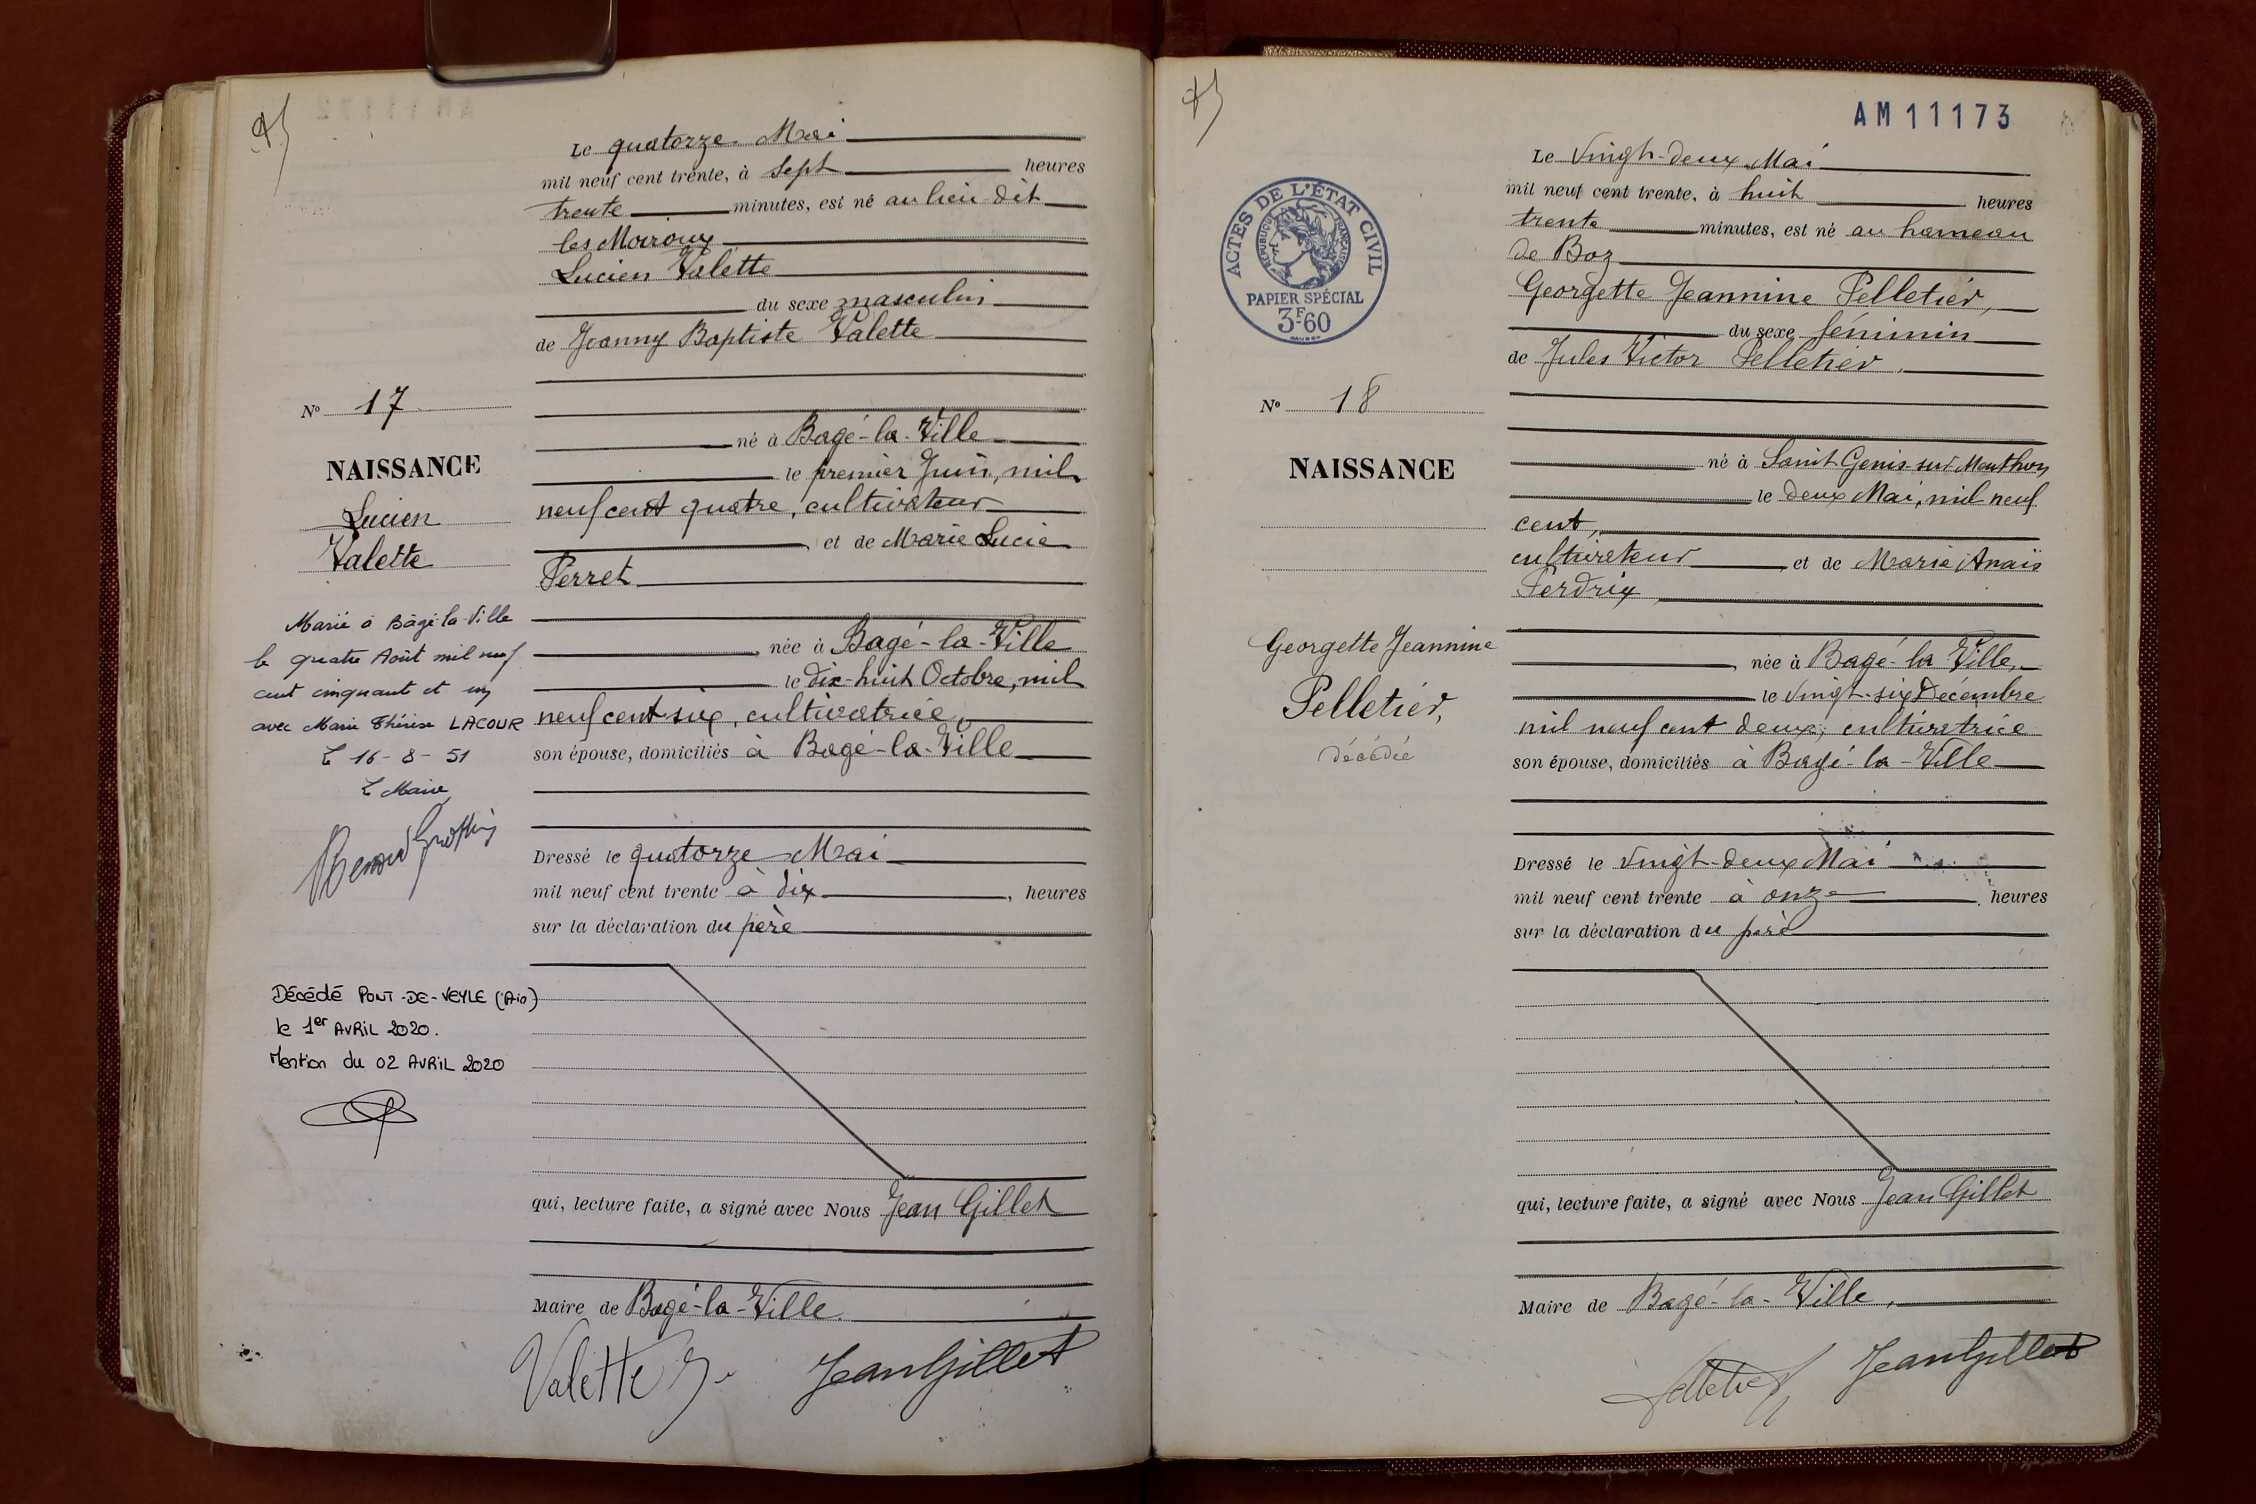 Le quatorze Mai
mil neuf cent trente, à sept heures
trente minutes, est né au lieu dit
les Moiroux
Lucien Valette
du sexe masculin
de Joanny Baptiste Valette
né à Bagé-la-Ville
le premier Juin, mil
neuf cent quatre, cultivateur
et de Marie Lucie
Perret
née à Bagé-la-Ville
le dix-huit Octobre, mil
neuf cent six, cultivatrice,
son épouse, domiciliés à Bagé-la-Ville
Dressé le quatorze Mai
mil neuf cent trente à dix, heures
sur la déclaration du père
qui, lecture faite, a signé avec Nous Jean Gillet
Maire de Bagé-la-Ville.
Valette J.
Jean Gillet
No 17
NAISSANCE
Lucien
Valette
Marié à Bâgé-la-Ville
le quatre Août mil neuf
cent cinquante et un
avec Marie Thérèse LACOUR
Le 16-8-51
Le Maire
Décédé PONT-DE-VEYLE (Ain)
le 1er AVRIL 2020.
Mention du 02 AVRIL 2020
AM11173
Le vingt-deux Mai
mil neuf cent trente, à huit heures
trente minutes, est né au hameau
de Boz
Georgette Jeannine Pelletier,
du sexe féminin
de Jules Victor Pelletier,
né à Saint Genis sur Menthon
le deux Mai, mil neuf
cent,
cultivateur, et de Marie Anaïs
Perdrix,
née à Bagé-la Ville,
le vingt-six Décembre
mil neuf cent deux, cultivatrice
son épouse, domiciliés à Bagé-la-Ville
Dressé le vingt-deux Mai
mil neuf cent trente à onze, heures
sur la déclaration du père
qui, lecture faite, a signé avec Nous Jean Gillet
Maire de Bagé-la-Ville,
Pelletier
Jean Gillet
ACTES DE L'ÉTAT CIVIL
RÉPUBLIQUE FRANÇAISE
PAPIER SPÉCIAL
3F60
No 18
NAISSANCE
Georgette Jeannine
Pelletier,
décédée